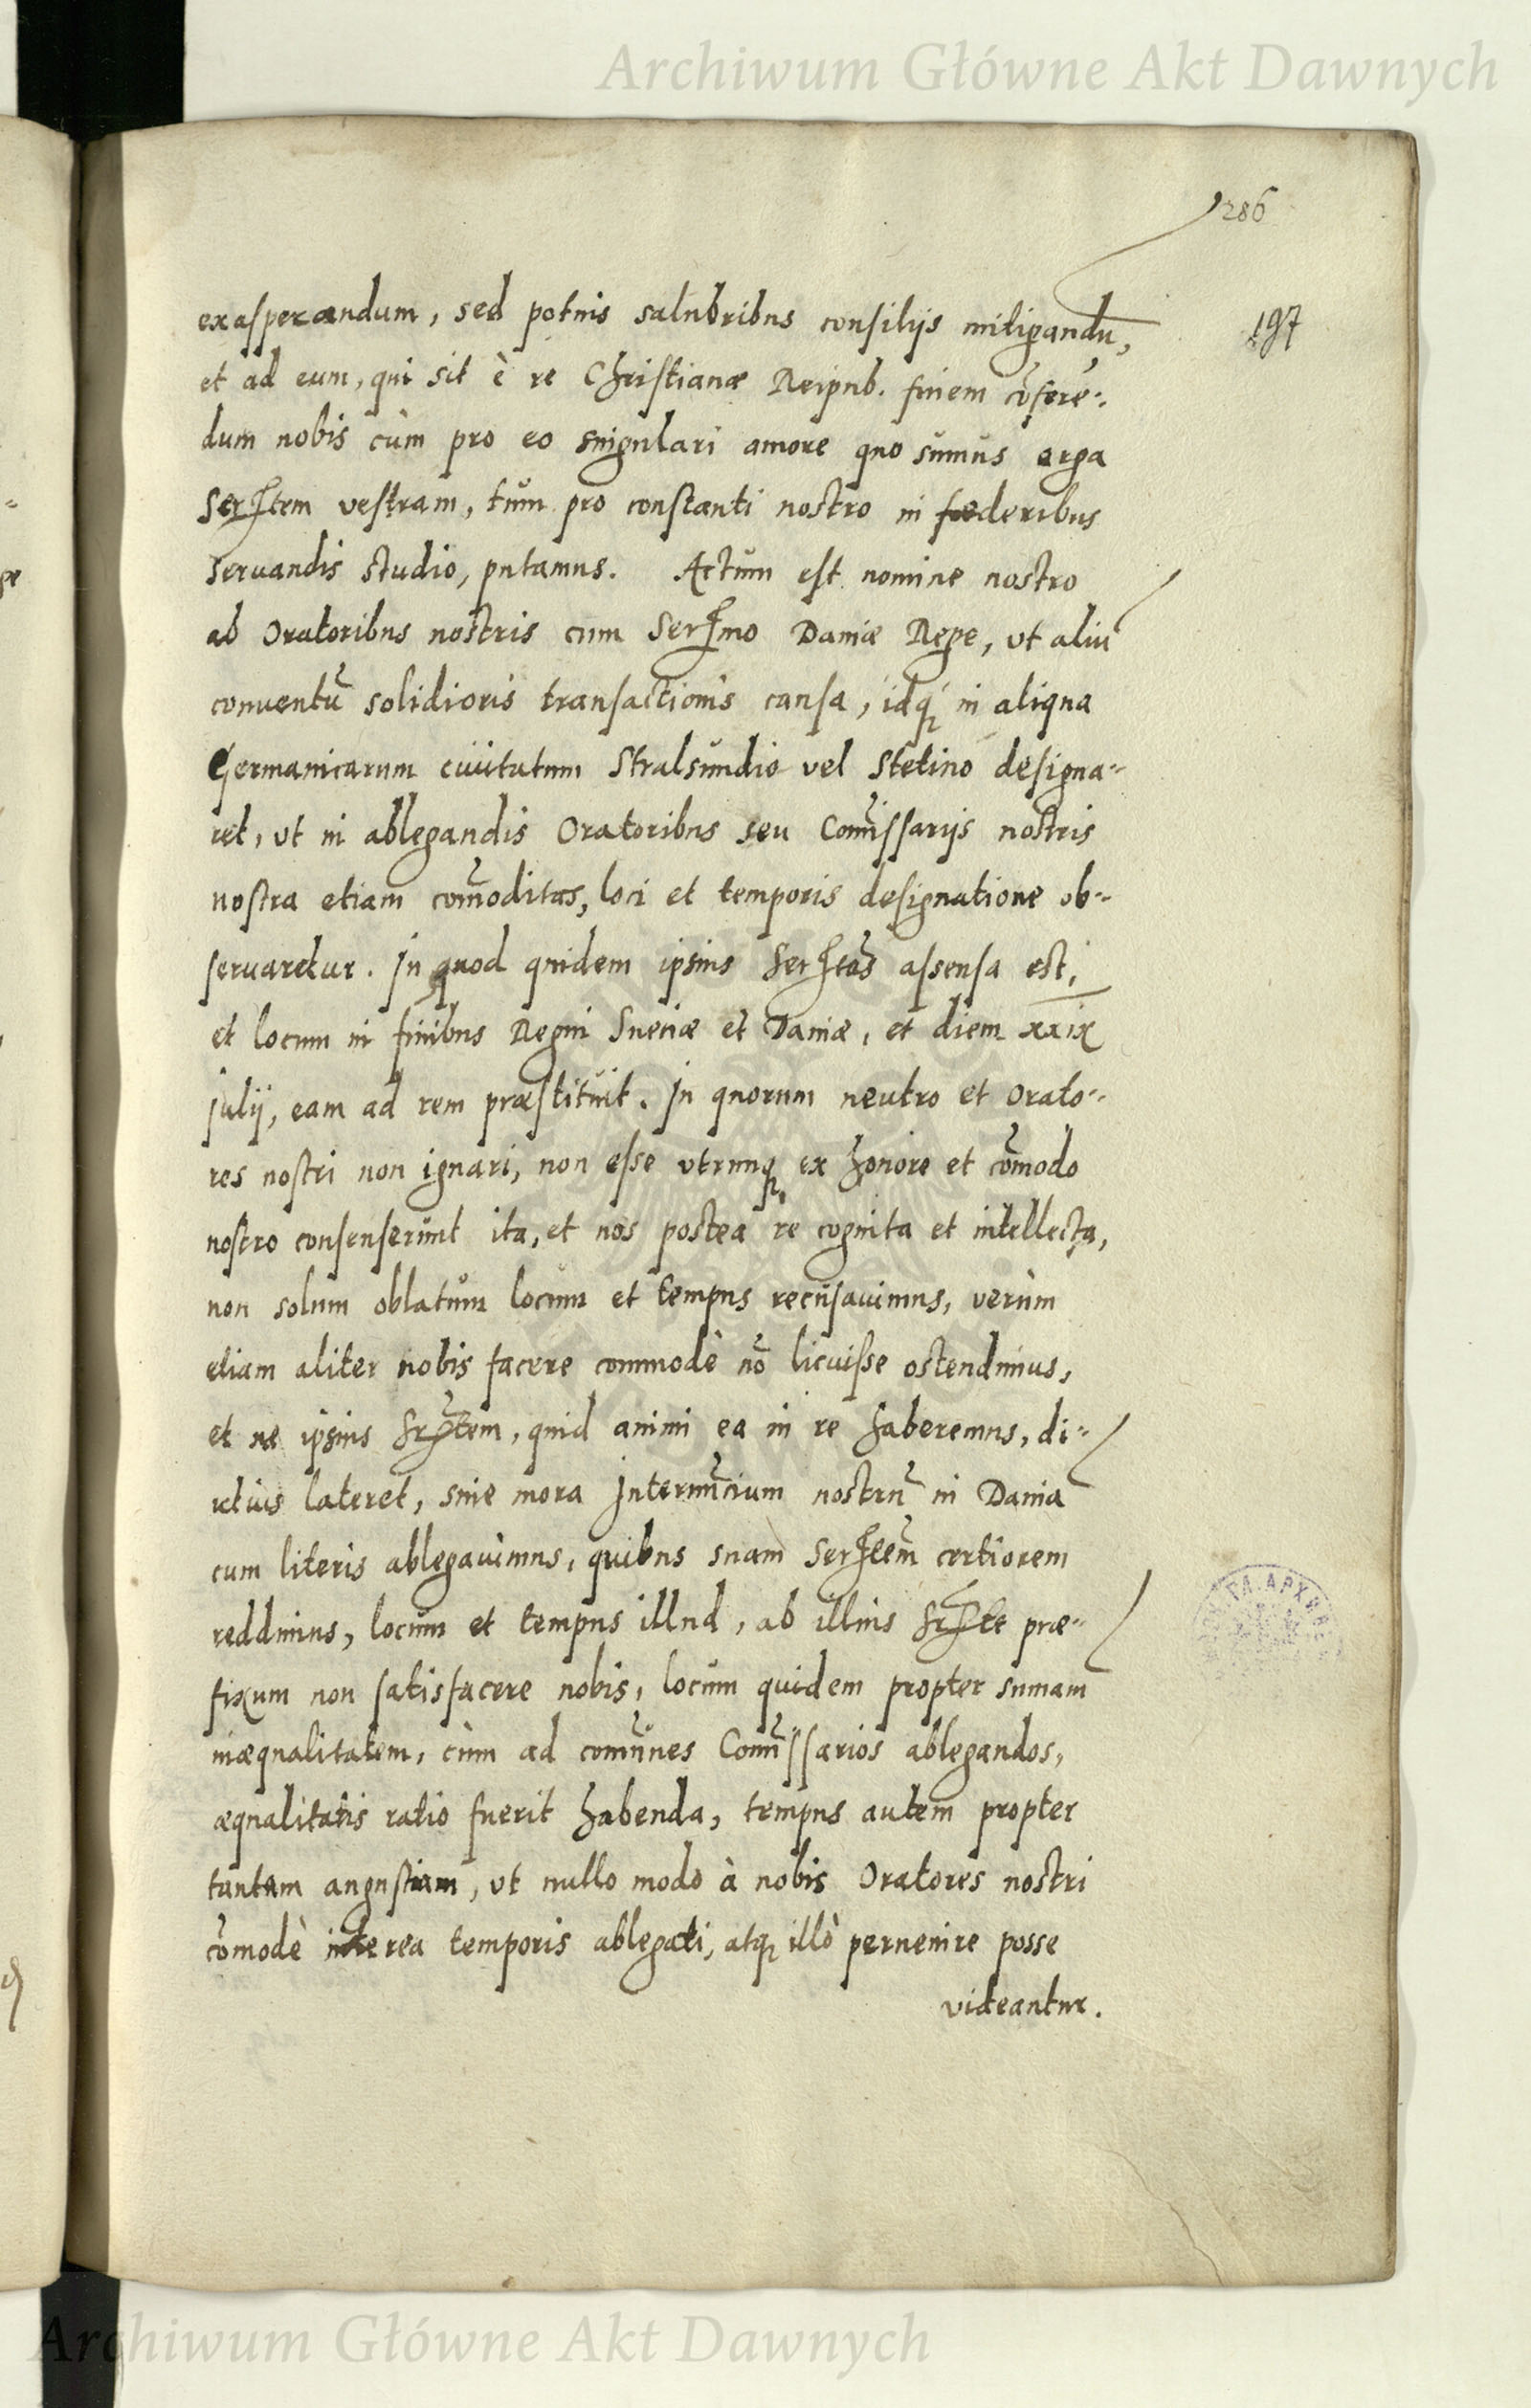 Archiwum Główne Akt Dawnych
286
197
exasperandum, sed potius salubribus consilijs mitigandū,
et ad eum, qui sit è re Christianæ Reipub. finem cōferē-
dum nobis cùm pro eo singulari amore quo sumus erga
Serᵗtem vestram, tum pro constanti nostro in fœderibus
seruandis studio, putamus. Actum est nomine nostro
ab Oratoribus nostris cum Serᵐmo Daniæ Rege, vt aliū
conuentū solidioris transactionis causa, idq́ in aliqua
Germanicarum ciuitatum Stralsundio vel Stetino designa-
ret, vt in ablegandis Oratoribus seu Com̄issarijs nostris
nostra etiam com̄oditas, loci et temporis designatione ob-
seruaretur. In quod quidem ipsius Serᵗtas assensa est,
et locum in finibus Regni Sueciæ et Daniæ, et diem xxix
Julij, eam ad rem præstituit. In quorum neutro et Orato-
res nostri non ignari, non esse vtrunq ex honore et cōmodo
nostro consenserunt ita, et nos postea re cognita et intellecta,
non solum oblatum locum et tempus recusauimus, verùm
etiam aliter nobis facere commodè nō licuisse ostendimus,
et ne ipsius Srtem, quid animi ea in re haberemus, di-
utius lateret, sine mora Internūcium nostrū in Daniā
cum literis ablegauimus, quibus suam Serᵗtem certiorem
reddimus, locum et tempus illud, ab illius Srte præ-
fixum non satisfacere nobis, locum quidem propter sumam
inæqualitatem, cùm ad comūnes Com̄issarios ablegandos,
æqualitatis ratio fuerit habenda, tempus autem propter
tantam angustiam, vt nullo modo à nobis Oratores nostri
cōmodè interea temporis ablegati, atq illò peruenire posse
videantur.
Archiwum Główne Akt Dawnych